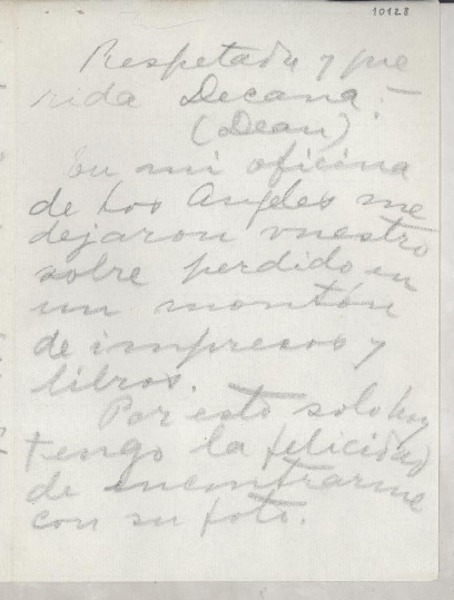 10128
Respetada y que
rida Decana:-
(Dean)
En mi oficina
de Los Angeles me
dejaron vuestro
sobre perdido en
un montón
de impresos y
libros.
Por esto solo hoy
tengo la felicidad
de encontrarme
con su foto.